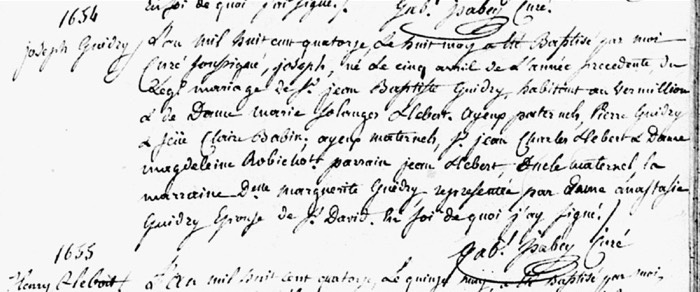 En foi de quoi j'ai signé. Gab.l Isabey Curé.
1654
Joseph Guidry
L'an mil huit cent quatorze, Le huit may a été Baptisé par moi
Curé soussigné, joseph, né le cinq avril de l'année précedente, du
Légi. mariage de S.r jean Baptiste Guidry, habitant au Vermillion
& de Dame marie Solanges Hebert. ayeux paternels, Pierre Guidry
& feüe Claire Babin, ayeux maternels, S.r jean Charles Hebert & Dame
magdeleine Robichott parrain jean Hebert, Oncle maternel, la
marraine D.lle marguerite Guidry, representée par dame anastasie
Guidry Epouse de S.r David. En foi de quoi j'ay signé./
Gab.l Isabey Curé
1655
Henry Hebert
L'An mil huit cent quatorze, Le quinze may a été Baptisé par moi,